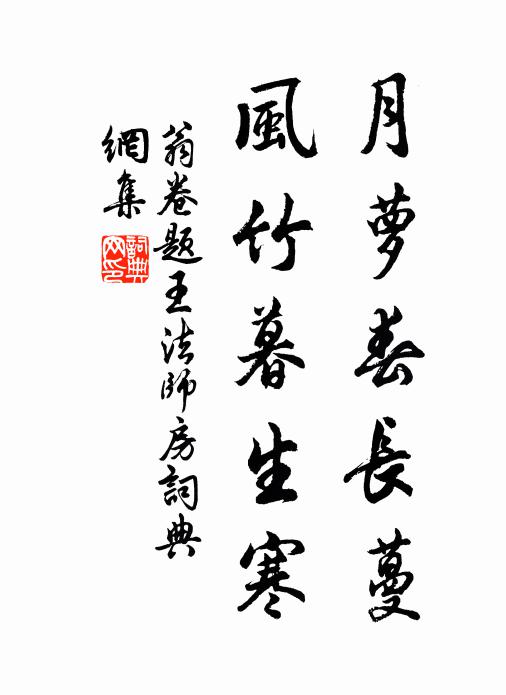 月萝春長蔓
風竹暮生寒
翁卷題王法師房詞典
網集
詞典
网印